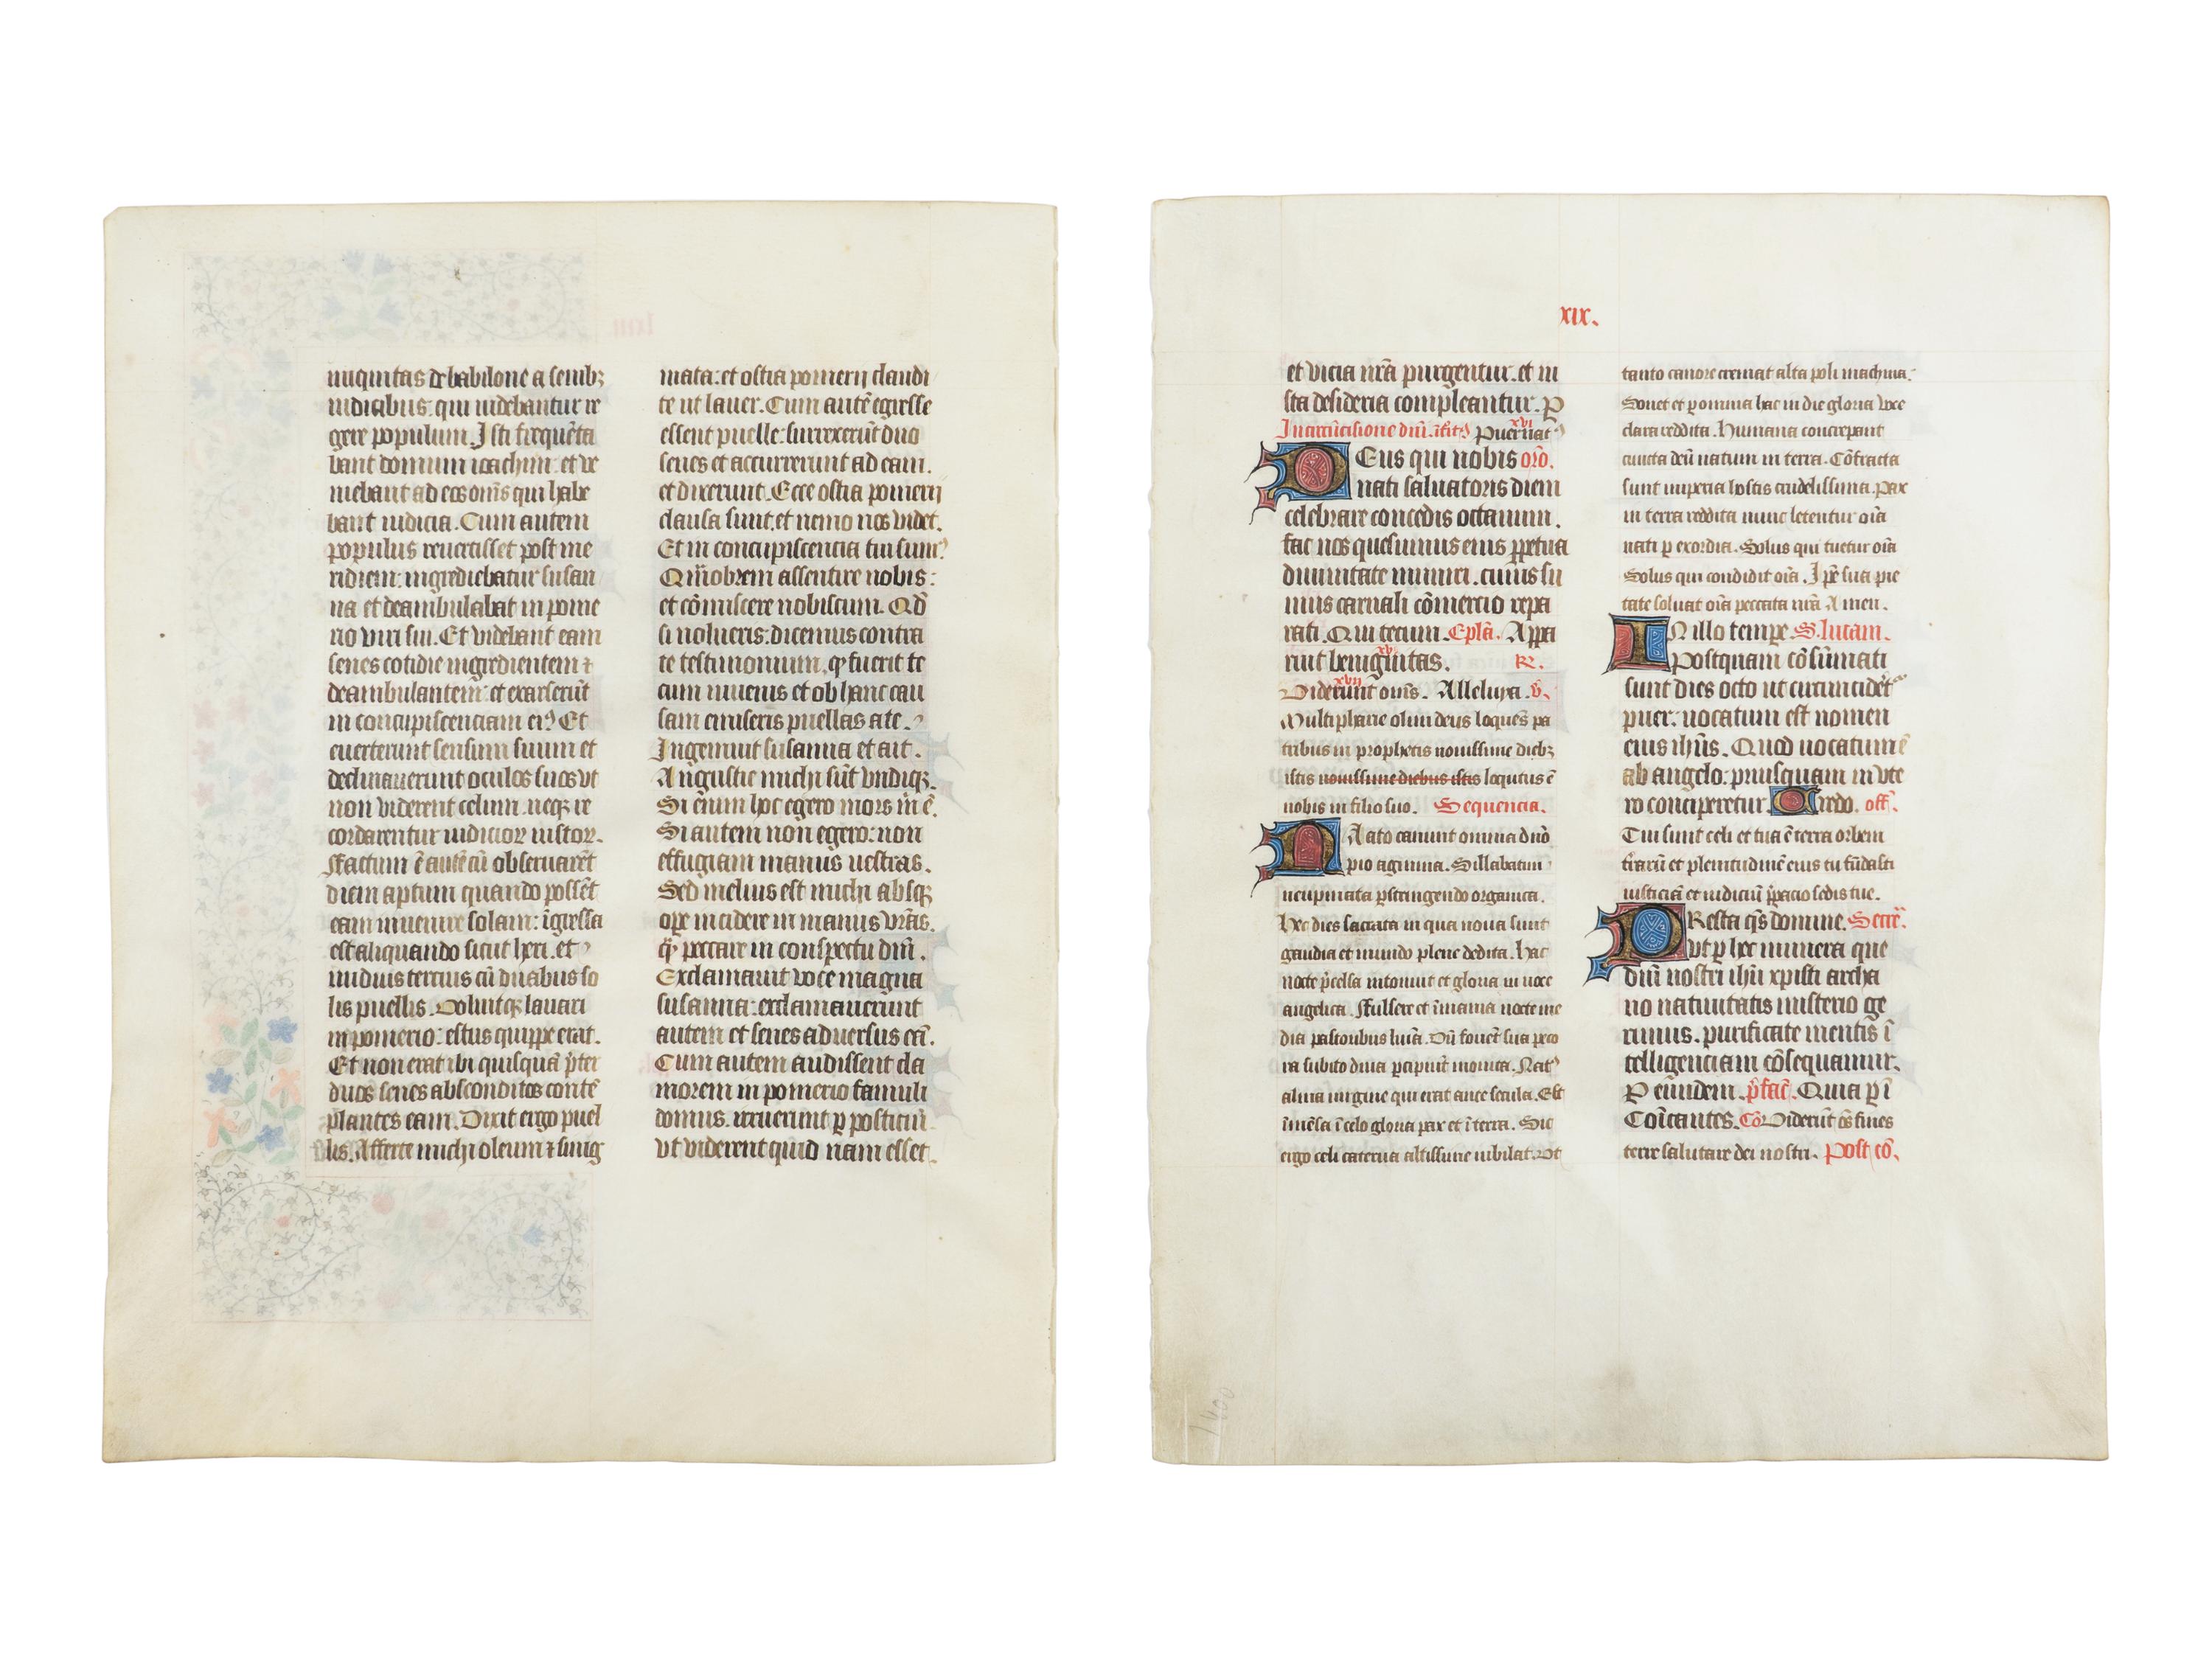 iniquitas de babilone a senibꝫ
iudicibus: qui uidebantur re
gere populum. Isti frequēta
bant domum ioachim: et ve
niebant ad eos om̄s qui habe
bant iudicia. Cum autem
populus reuertisset post me
ridiem: ingrediebatur susan
na et deambulabat in pome
rio viri sui. Et videbant eam
senes cotidie ingredientem ⁊
deambulantem: et exarserūt
in concupiscenciam eiꝰ Et
euerterunt sensum suum et
declinauerunt oculos suos vt
non viderent celum. neqꝫ re
cordarentur iudicioꝝ iustoꝝ.
Factum ē autē cū obseruarēt
diem aptum quando possēt
eam inuenire solam: īgressa
est aliquando sicut heri. et
nudius tercius cū duabus so
lis puellis. Voluitqꝫ lauari
in pomerio: estus quippe erat.
Et non erat ibi quisquā p̄ter
duos senes absconditos contē
plantes eam. Dixit ergo puel
lis. Afferte michi oleum ⁊ smig
mata: et ostia pomerij claudi
te ut lauer. Cum autē egresse
essent puelle: surrexerūt duo
senes et accurrerunt ad eam.
et dixerunt. Ecce ostia pomerij
clausa sunt. et nemo nos videt.
Et in concupiscencia tui sumꝰ
Qm̄obrem assentire nobis:
et cōmiscere nobiscum. Qd̄
si nolueris: dicemus contra
te testimonium. ꝙ fuerit te
cum iuuenis et ob hanc cau
sam emiseris puellas a te.
Ingemuit susanna et ait.
Angustie michi sūt vndiqꝫ.
Si enim hoc egero mors m̄ ē.
Si autem non egero: non
effugiam manus uestras.
Sed melius est michi absqꝫ
oꝑe incidere in manus vr̄as.
ꝙ̄ peccare in conspectu dn̄i.
Exclamauit voce magna
susanna: exclamauerunt
autem et senes aduersus eā.
Cum autem audissent cla
morem in pomerio famuli
domus. irruerunt ꝑ posticiū
vt viderent quid nam esset.
xix.
et vicia nr̄a purgentur. et iu
sta desideria compleantur. ꝑ
In circūcisione dn̄i. Puer nat xvi
Deus qui nobis oro.
nati saluatoris diem
celebrare concedis octauum.
fac nos quesumus eius ꝑpetua
diuinitate muniri. cuius su
mus carnali cōmercio repa
rati. Qui tecum. Epl̄a. Appa
ruit benignitas. xv R.
Viderunt om̄s. xvii Alleluya. v̄.
Multipharie olim deus loques pa
tribus in prophetis nouissime diebꝫ
istis nouissime diebus istis loqutus ē
nobis in filio suo. Sequencia.
Nato canunt omnia dn̄o
pio agmina. Sillabatim
neupmata ꝑstringendo organica.
Hec dies sacrata in qua noua sunt
gaudia et mundo plene dedita. Hac
nocte p̄celsa intonuit et gloria in uoce
angelica. Fulsere et īmania nocte me
dia pastoribus lumīa. Dū fouēt sua peco
ra subito diua ꝑcipiūt monita. Natꝰ
alma uirgine qui erat ante secula. Est
īmēsa ī celo gloria pax et ī terra. Sic
ergo celi caterua altissime iubilat. Vt
tanto canore tremat alta poli machina.
Sonet et ꝑ omnia hac in die gloria voce
clara reddita. Humana concrepant
cuncta deū natum in terra. Cōfracta
sunt imperia hostis crudelissima. Pax
in terra reddita nunc letentur oīa
nati ꝑ exordia. Solus qui tuetur oīa
Solus qui condidit oīa. Ip̄e sua pie
tate soluat oīa peccata nr̄a. Amen.
In illo tempe S. lucam.
Postquam cōsūmati
sunt dies octo ut circumcidetꝰ
puer: uocatum est nomen
eius ihūs. Quod uocatum ē
ab angelo: priusquam in vte
ro conciperetur. Credo. off̄.
Tui sunt celi et tua ē terra orbem
t̄rarū et plenitudinē eius tu fūdasti
iusticiā et iudiciū p̄pacio sedis tue.
Presta q̄s domine. Secr̄.
vt ꝑ hec munera que
dn̄i nostri ihū xpisti archa
no natiuitatis misterio ge
rimus. purificate mentis ī
telligenciam cōsequamur.
ꝑ eūndem. p̄fac̄. Quia ꝑ ī
Coīcantes. Cō Viderūt oēs fines
terre salutare dei nostri. Post cō.
1400